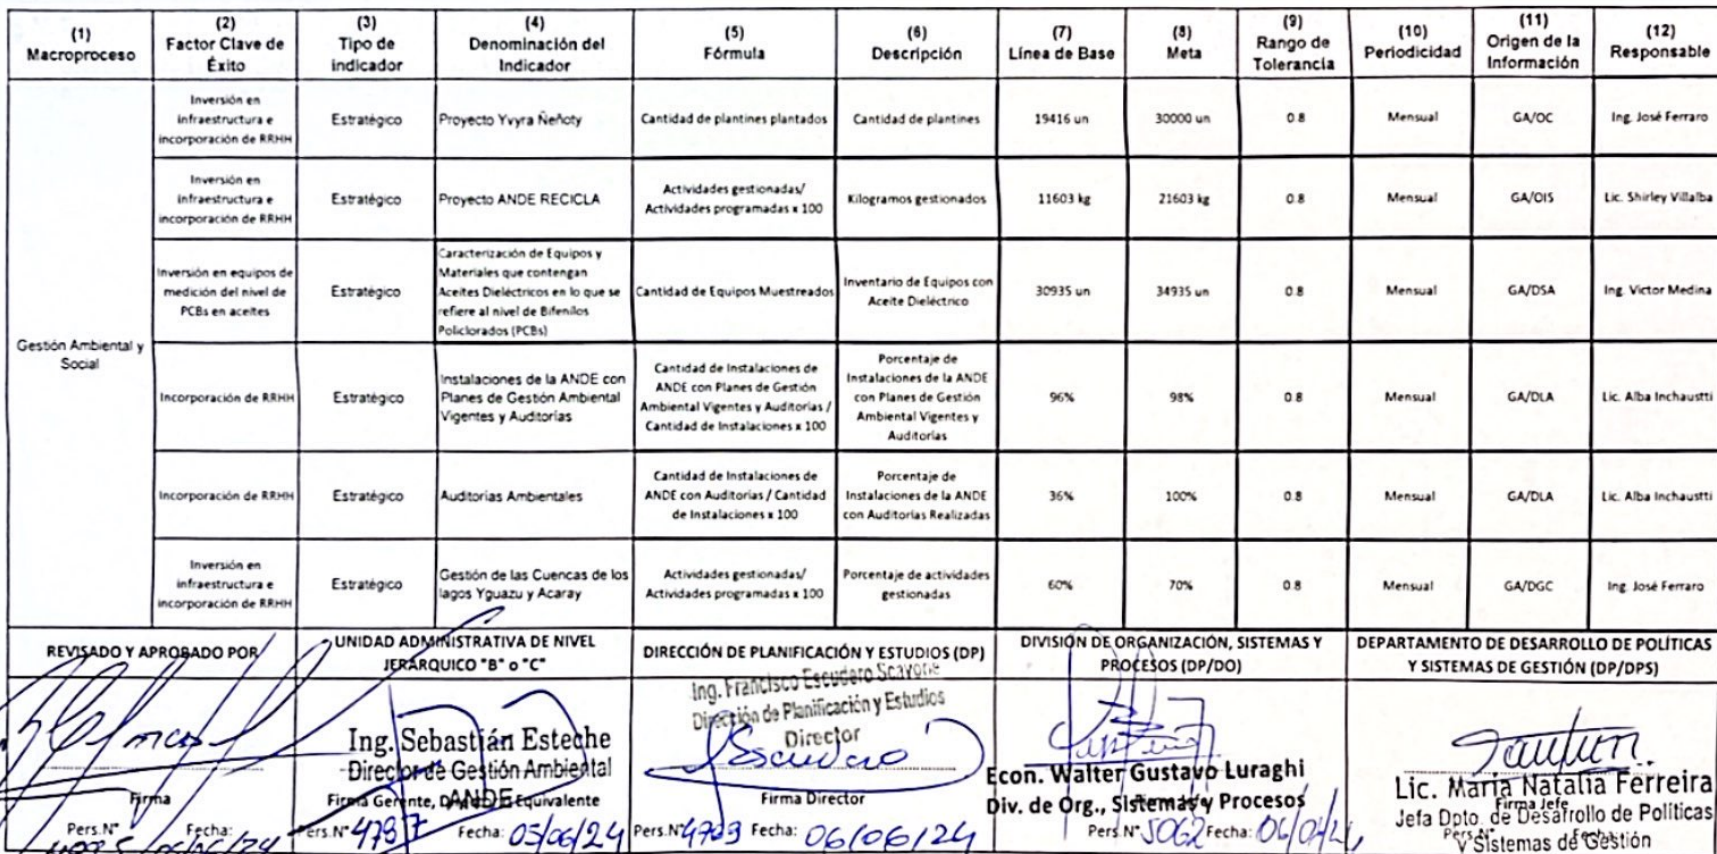 (1)
Macroproceso
(2)
Factor Clave de
Éxito
(3)
Tipo de
indicador
(4)
Denominación del
Indicador
(5)
Fórmula
(6)
Descripción
(7)
Línea de Base
(8)
Meta
(9)
Rango de
Tolerancia
(10)
Periodicidad
(11)
Origen de la
Información
(12)
Responsable
Gestión Ambiental y
Social
Inversión en
infraestructura e
incorporación de RRHH
Estratégico
Proyecto Yvyra Ñeñoty
Cantidad de plantines plantados
Cantidad de plantines
19416 un
30000 un
0.8
Mensual
GA/OC
Ing. José Ferraro
Inversión en
infraestructura e
incorporación de RRHH
Estratégico
Proyecto ANDE RECICLA
Actividades gestionadas/
Actividades programadas x 100
Kilogramos gestionados
11603 kg
21603 kg
0.8
Mensual
GA/OIS
Lic. Shirley Villalba
Inversión en equipos de
medición del nivel de
PCBs en aceites
Estratégico
Caracterización de Equipos y
Materiales que contengan
Aceites Dieléctricos en lo que se
refiere al nivel de Bifenilos
Policlorados (PCBs)
Cantidad de Equipos Muestreados
Inventario de Equipos con
Aceite Dieléctrico
30935 un
34935 un
0.8
Mensual
GA/DSA
Ing. Victor Medina
Incorporación de RRHH
Estratégico
Instalaciones de la ANDE con
Planes de Gestión Ambiental
Vigentes y Auditorías
Cantidad de Instalaciones de
ANDE con Planes de Gestión
Ambiental Vigentes y Auditorías /
Cantidad de Instalaciones x 100
Porcentaje de
Instalaciones de la ANDE
con Planes de Gestión
Ambiental Vigentes y
Auditorías
96%
98%
0.8
Mensual
GA/DLA
Lic. Alba Inchaustti
Incorporación de RRHH
Estratégico
Auditorías Ambientales
Cantidad de Instalaciones de
ANDE con Auditorías / Cantidad
de Instalaciones x 100
Porcentaje de
Instalaciones de la ANDE
con Auditorías Realizadas
36%
100%
0.8
Mensual
GA/DLA
Lic. Alba Inchaustti
Inversión en
infraestructura e
incorporación de RRHH
Estratégico
Gestión de las Cuencas de los
lagos Yguazu y Acaray
Actividades gestionadas/
Actividades programadas x 100
Porcentaje de actividades
gestionadas
60%
70%
0.8
Mensual
GA/DGC
Ing. José Ferraro
REVISADO Y APROBADO POR
UNIDAD ADMINISTRATIVA DE NIVEL
JERÁRQUICO "B" o "C"
DIRECCIÓN DE PLANIFICACIÓN Y ESTUDIOS (DP)
DIVISIÓN DE ORGANIZACIÓN, SISTEMAS Y
PROCESOS (DP/DO)
DEPARTAMENTO DE DESARROLLO DE POLÍTICAS
Y SISTEMAS DE GESTIÓN (DP/DPS)
Firma
Pers.N°
Fecha:
Ing. Sebastián Esteche
Director de Gestión Ambiental
ANDE
Firma Gerente, Equivalente
Pers.N° 4797
Fecha: 05/06/24
Ing. Francisco Escudero Scavone
Dirección de Planificación y Estudios
Director
Escudero
Firma Director
Pers.N° 4703 Fecha: 06/06/24
Econ. Walter Gustavo Luraghi
Div. de Org., Sistemas y Procesos
Pers.N° 5062 Fecha:
Lic. María Natalia Ferreira
Firma Jefe
Jefa Dpto. de Desarrollo de Políticas
Pers.N° Fecha:
y Sistemas de Gestión